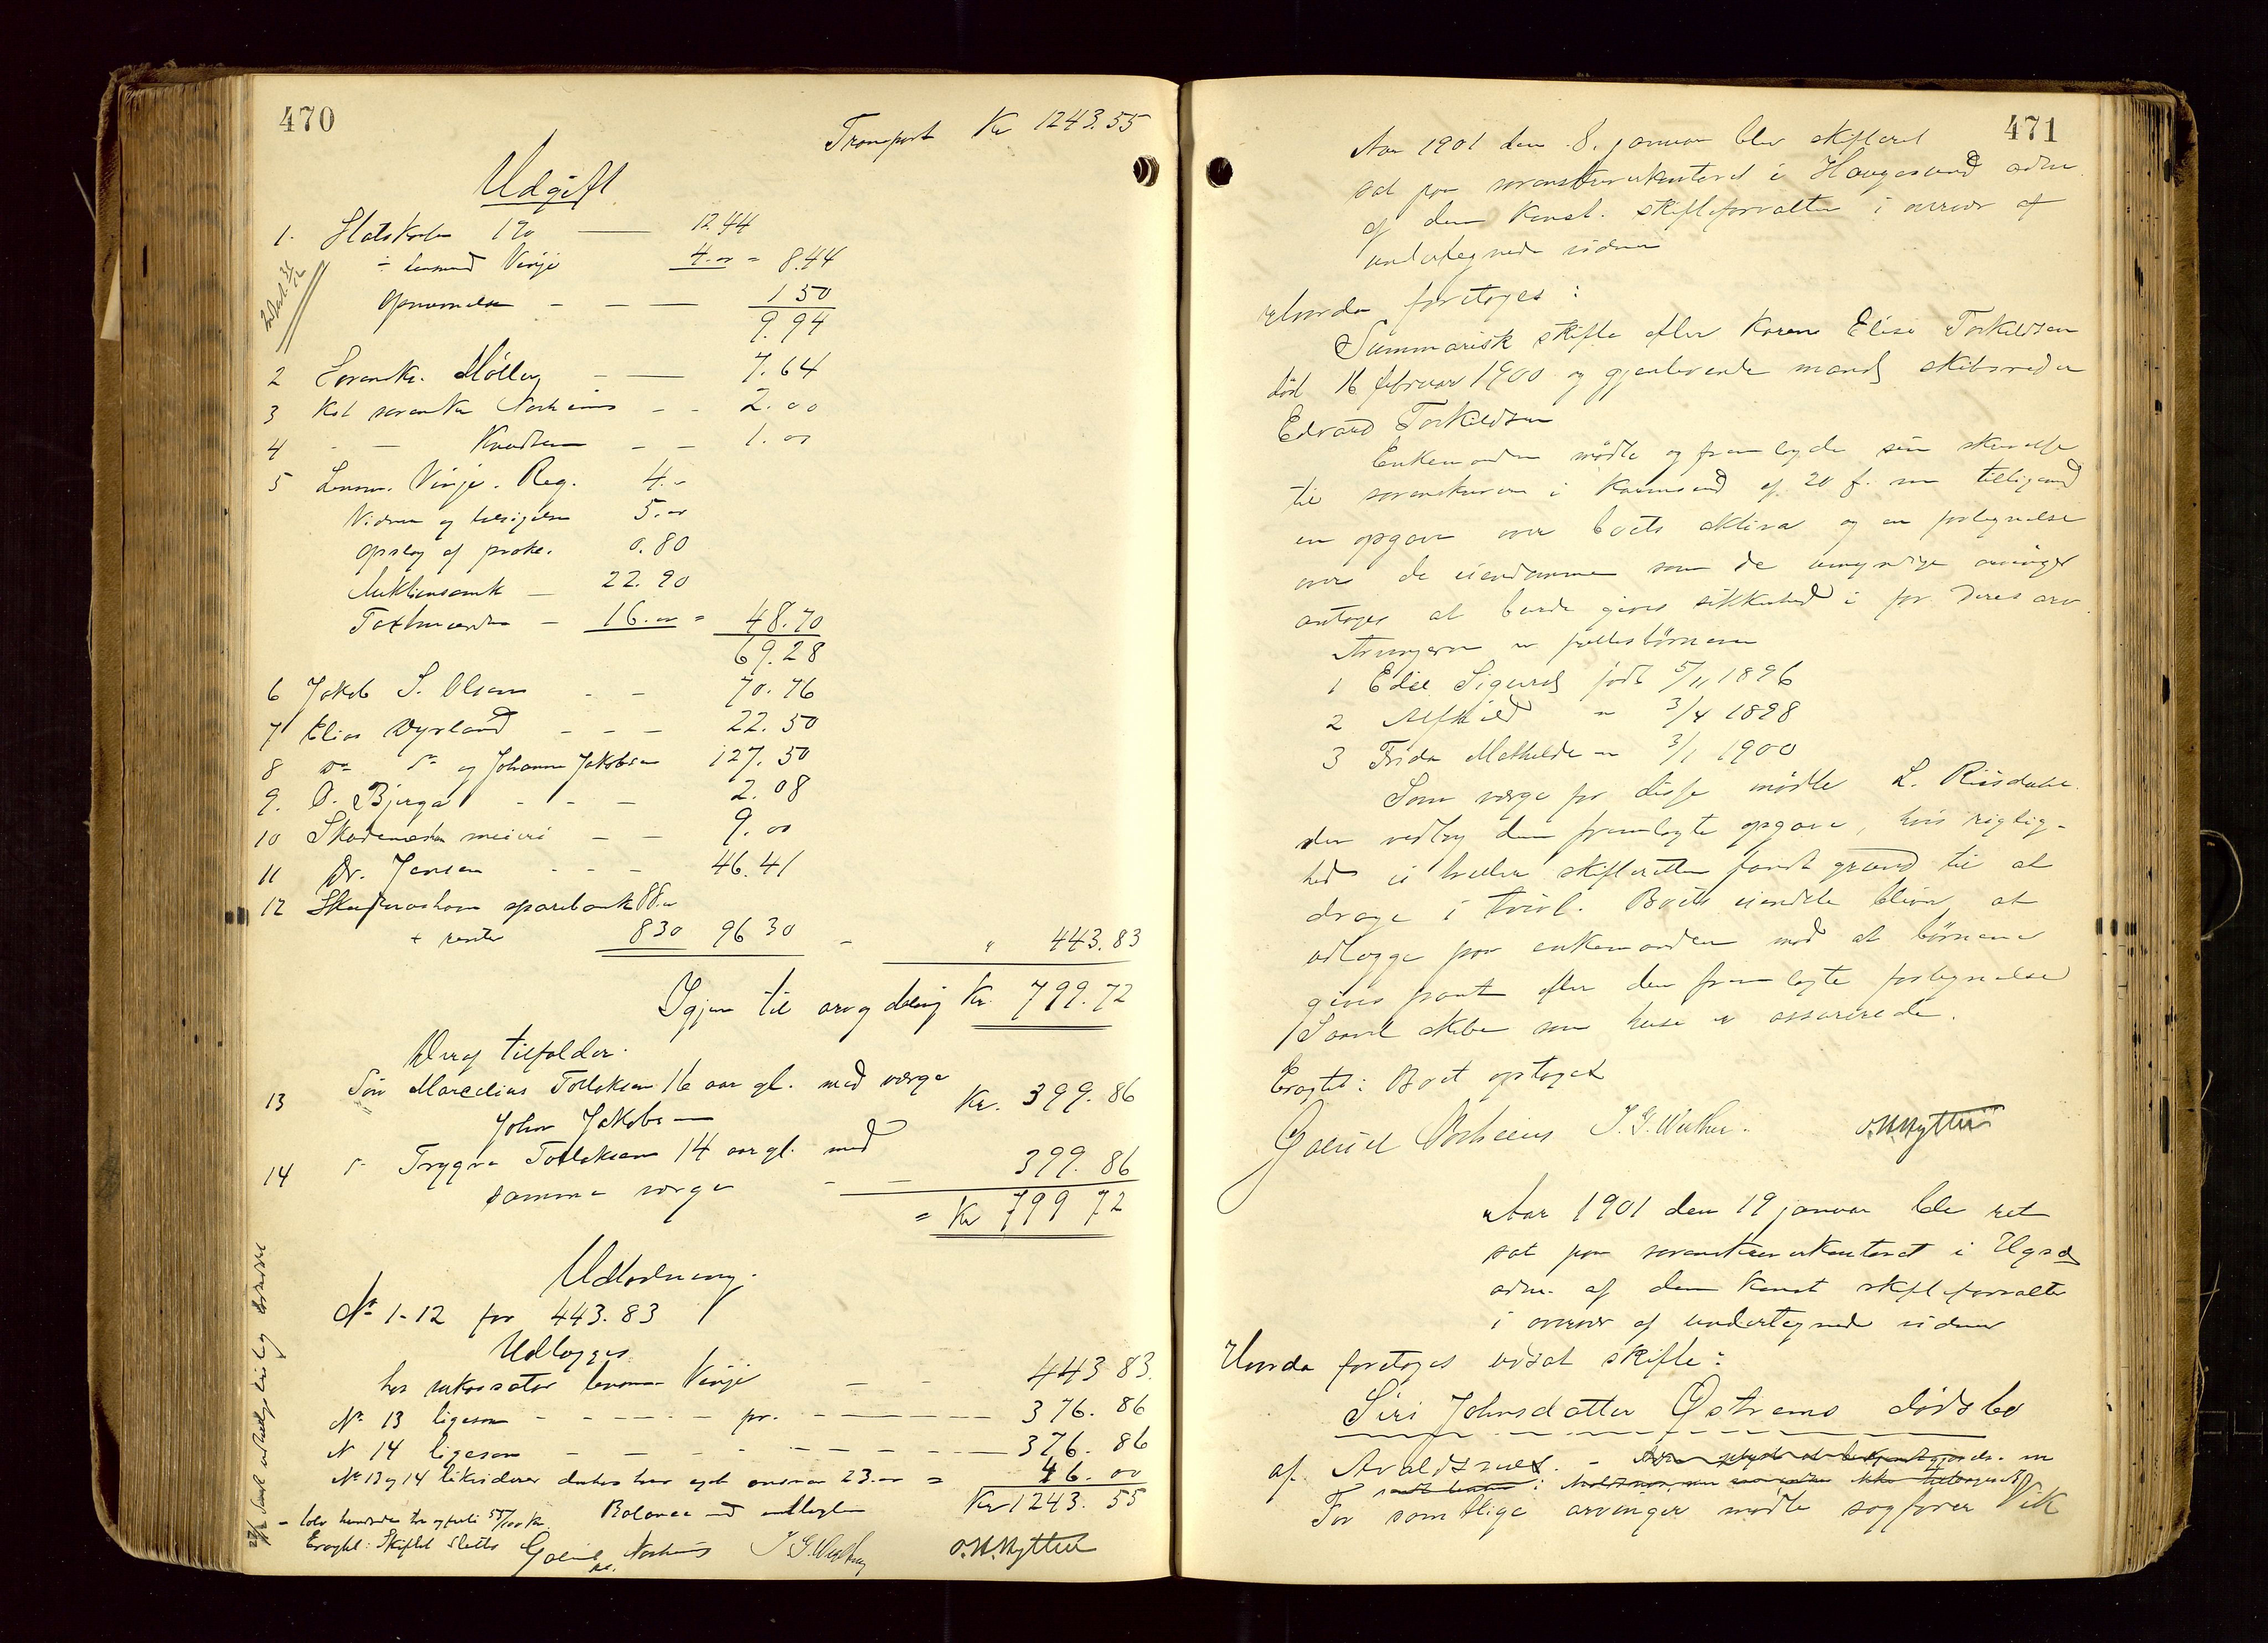 470
Transport Kr 1243.55
Udgift
1. Statskassen 1% — 12.44
÷ lensmand Vinje 4.00 = 8.44
Opnævnelse - - — 1 50
9.94
2 Sorenskr. Møller - — 7.64
3 Kst sorenskr Norheim - - 2.00
4 - — Knudsen - - 1.00
5 Lensm. Vinje. Reg. 4.-
Vidner og tilsigelse 5.00
Opslag af prokl. 0.80
Auktionsomk — 22.90
Taxtmænden - 16.00 = 48.70
69.28
6 Jakob S. Olsen - - 70.76
7 Elias Dyrland - - - 22.50
8 Do So og Johanne Jakobsen 127.50
9. O. Bjerga - - - 2.08
10 Skudenes meieri - - 9.00
11 Dr. Jensen - - - 46.41
12 Skudeneshavn sparebank 88.00
+ renter 830 96 30 - " 443.83
Igjen til arv og deling Kr. 799.72
Deraf tilfalder.
13 Søn Marcelius Tollaksen 16 aar gl. med værge
John Jakobsen Kr. 399.86
14 So Trygve Tollaksen 14 aar gl. med
samme værge - — 399.86
= Kr 799 72
Udlodning.
No 1-12 for 443.83
Udlægges
hos inkassator lensm Vinje - - 443 83.
No 13 ligesom - - - - - pr. - — — — 376. 86
No 14 ligesom - - - - - - - - — 376. 86
No 13 og 14 likviderer ansvar 23.00 = 46. 00
Balance med indtægten Kr 1243. 55
- tolv hundrede tre og firti 55/100 Kr.
Eragtet: Skiftet sluttet Gabriel Norheim J. G. Wathne O.H.Hytten
471
Aar 1901 den 8. januar blev skifteret
sat paa sorenskriverkontoret i Haugesund adm.
af den konst. skifteforvalter i overvær af
undertegnede vidner
Hvorda foretoges:
Summarisk skifte efter Karen Elise Torkildsen
død 16 februar 1900 og gjenlevende mand skibsreder
Edvard Torkildsen
Enkemanden mødte og fremlagde sin skrivelse
til sorenskriveren i Karmsund af 20 f. m. tilligemed
en opgave over boets aktiva og en fortegnelse
over de eiendomme som de umyndige arvinger
antoges at burde gives sikkerhed i for deres arv.
Arvingerne er fællesbørnene
1 Edie Sigurd født 5/11 1896
2 Alfhild " 3/4 1898
3 Frida Mathilde " 3/1 1900
Som værge for disse mødte L. Riisdahl
der vedtog den fremlagte opgave, hvis rigtig-
hed ei heller skifteretten fandt grund til at
drage i tvivl. Boets eiendele bliver at
udlægge paa enkemanden mod at børnene
gives pant efter den fremlagte fortegnelse
Saavel skibe som huse er assurerede.
Eragtet: Boet optaget
Gabriel Norheim J. G. Wathne. O.H.Hytten
Aar 1901 den 19 januar blev ret
sat paa sorenskriverkontoret i Hgsd
adm. af den konst skifteforvalter
i overvær af undertegnede vidner
Hvorda foretoges udsat skifte:
Siri Johnsdatter Østrems dødsbo
af Avaldsnes. -
For samtlige arvinger mødte sagfører Vik